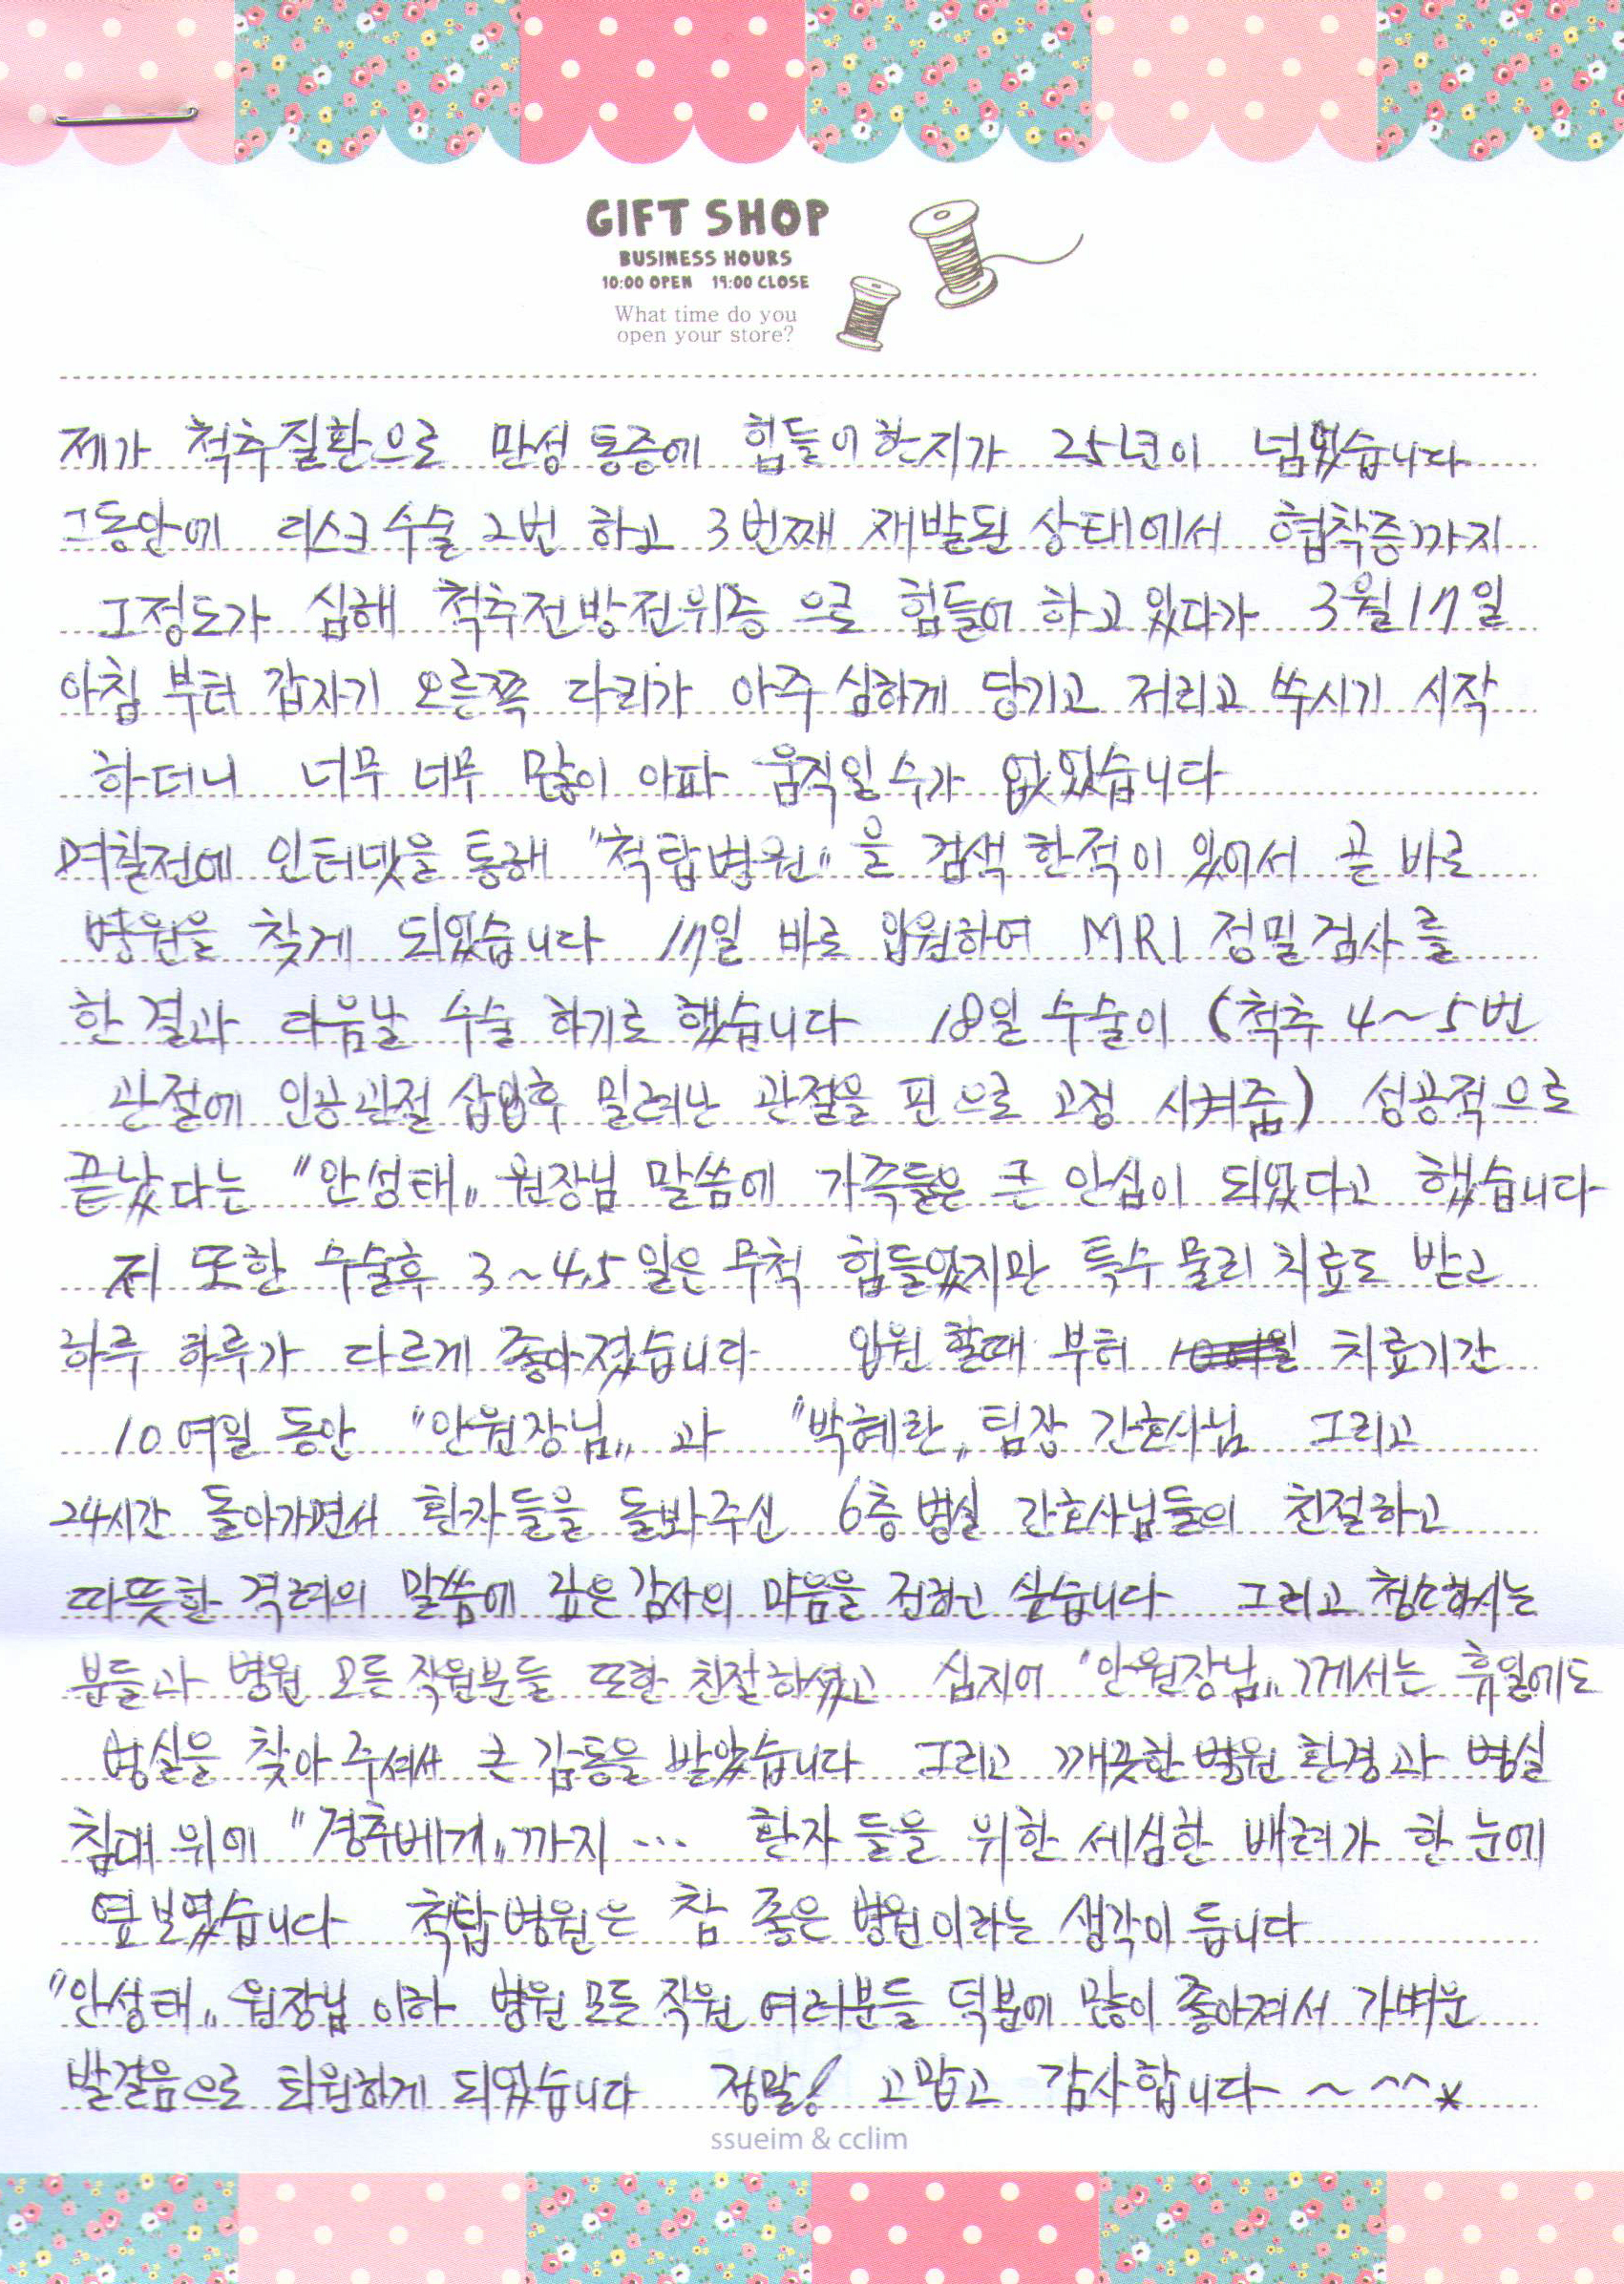 GIFT SHOP
BUSINESS HOURS
10:00 OPEN 19:00 CLOSE
What time do you
open your store?
제가 척추질환으로 만성통증에 힘들어한지가 25년이 넘었습니다
그동안에 디스크 수술 2번 하고 3번째 재발된 상태에서 협착증까지
그정도가 심해 척추전방전위증 으로 힘들어 하고 있다가 3월 17일
아침 부터 갑자기 오른쪽 다리가 아주 심하게 당기고 저리고 쑤시기 시작
하더니 너무 너무 많이 아파 움직일수가 없었습니다
며칠전에 인터넷을 통해 "척탑병원" 을 검색 한적이 있어서 곧 바로
병원을 찾게 되었습니다 17일 바로 입원하여 MRI 정밀검사를
한 결과 다음날 수술 하기로 했습니다 18일 수술이 (척추 4~5번
관절에 인공관절 삽입후 밀려난 관절을 핀으로 고정 시켜줌) 성공적으로
끝났다는 "안성태" 원장님 말씀에 가족들은 큰 안심이 되었다고 했습니다
저 또한 수술후 3~4,5일은 무척 힘들었지만 특수 물리치료도 받고
하루 하루가 다르게 좋아졌습니다 입원 할때 부터 치료기간
10여일 동안 "안원장님" 과 "박혜란" 팀장 간호사님 그리고
24시간 돌아가면서 환자들을 돌봐주신 6층 병실 간호사님들의 친절하고
따뜻한 격려의 말씀에 깊은 감사의 마음을 전하고 싶습니다 그리고 청소하시는
분들과 병원 모든 직원분들 또한 친절하셨고 심지어 "안원장님" 께서는 휴일에도
병실을 찾아 주셔서 큰 감동을 받았습니다 그리고 깨끗한 병원 환경과 병실
침대 위에 "경추베게" 까지 ... 환자 들을 위한 세심한 배려가 한 눈에
엿보였습니다 척탑병원은 참 좋은 병원이라는 생각이 듭니다
"안성태" 원장님 이하 병원 모든 직원 여러분들 덕분에 많이 좋아져서 가벼운
발걸음으로 퇴원하게 되었습니다 정말! 고맙고 감사합니다 ~ ^^*
ssueim & cclim